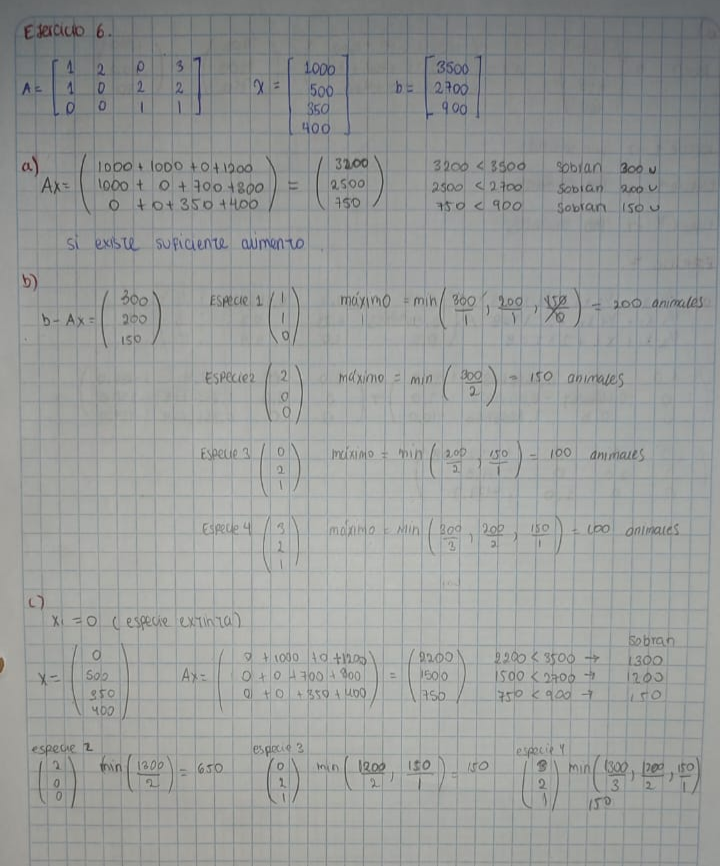 Ejercicio 6.
A = [ 1 2 0 3 ; 1 0 2 2 ; 0 0 1 1 ] x = [ 1000 ; 500 ; 350 ; 400 ] b = [ 3500 ; 2700 ; 900 ]
a)
Ax = ( 1000 + 1000 + 0 + 1200 ; 1000 + 0 + 700 + 800 ; 0 + 0 + 350 + 400 ) = ( 3200 ; 2500 ; 750 )
3200 < 3500 sobran 300 u
2500 < 2700 sobran 200 u
750 < 900 sobran 150 u
si existe suficiente alimento
b)
b - Ax = ( 300 ; 200 ; 150 ) Especie 1 ( 1 ; 1 ; 0 ) máximo = min ( 300/1 , 200/1 , 150/0 ) = 200 animales
Especie 2 ( 2 ; 0 ; 0 ) máximo = min ( 300/2 ) = 150 animales
Especie 3 ( 0 ; 2 ; 1 ) máximo = min ( 200/2 , 150/1 ) = 100 animales
Especie 4 ( 3 ; 2 ; 1 ) máximo = min ( 300/3 , 200/2 , 150/1 ) = 100 animales
c)
x1 = 0 (especie extinta)
sobran
x = ( 0 ; 500 ; 350 ; 400 ) Ax = ( 0 + 1000 + 0 + 1200 ; 0 + 0 + 700 + 800 ; 0 + 0 + 350 + 400 ) = ( 2200 ; 1500 ; 750 )
2200 < 3500 → 1300
1500 < 2700 → 1200
750 < 900 → 150
especie 2 ( 2 ; 0 ; 0 ) min ( 1300/2 ) = 650
especie 3 ( 0 ; 2 ; 1 ) min ( 1200/2 , 150/1 ) = 150
especie 4 ( 3 ; 2 ; 1 ) min ( 1300/3 , 1200/2 , 150/1 )
150